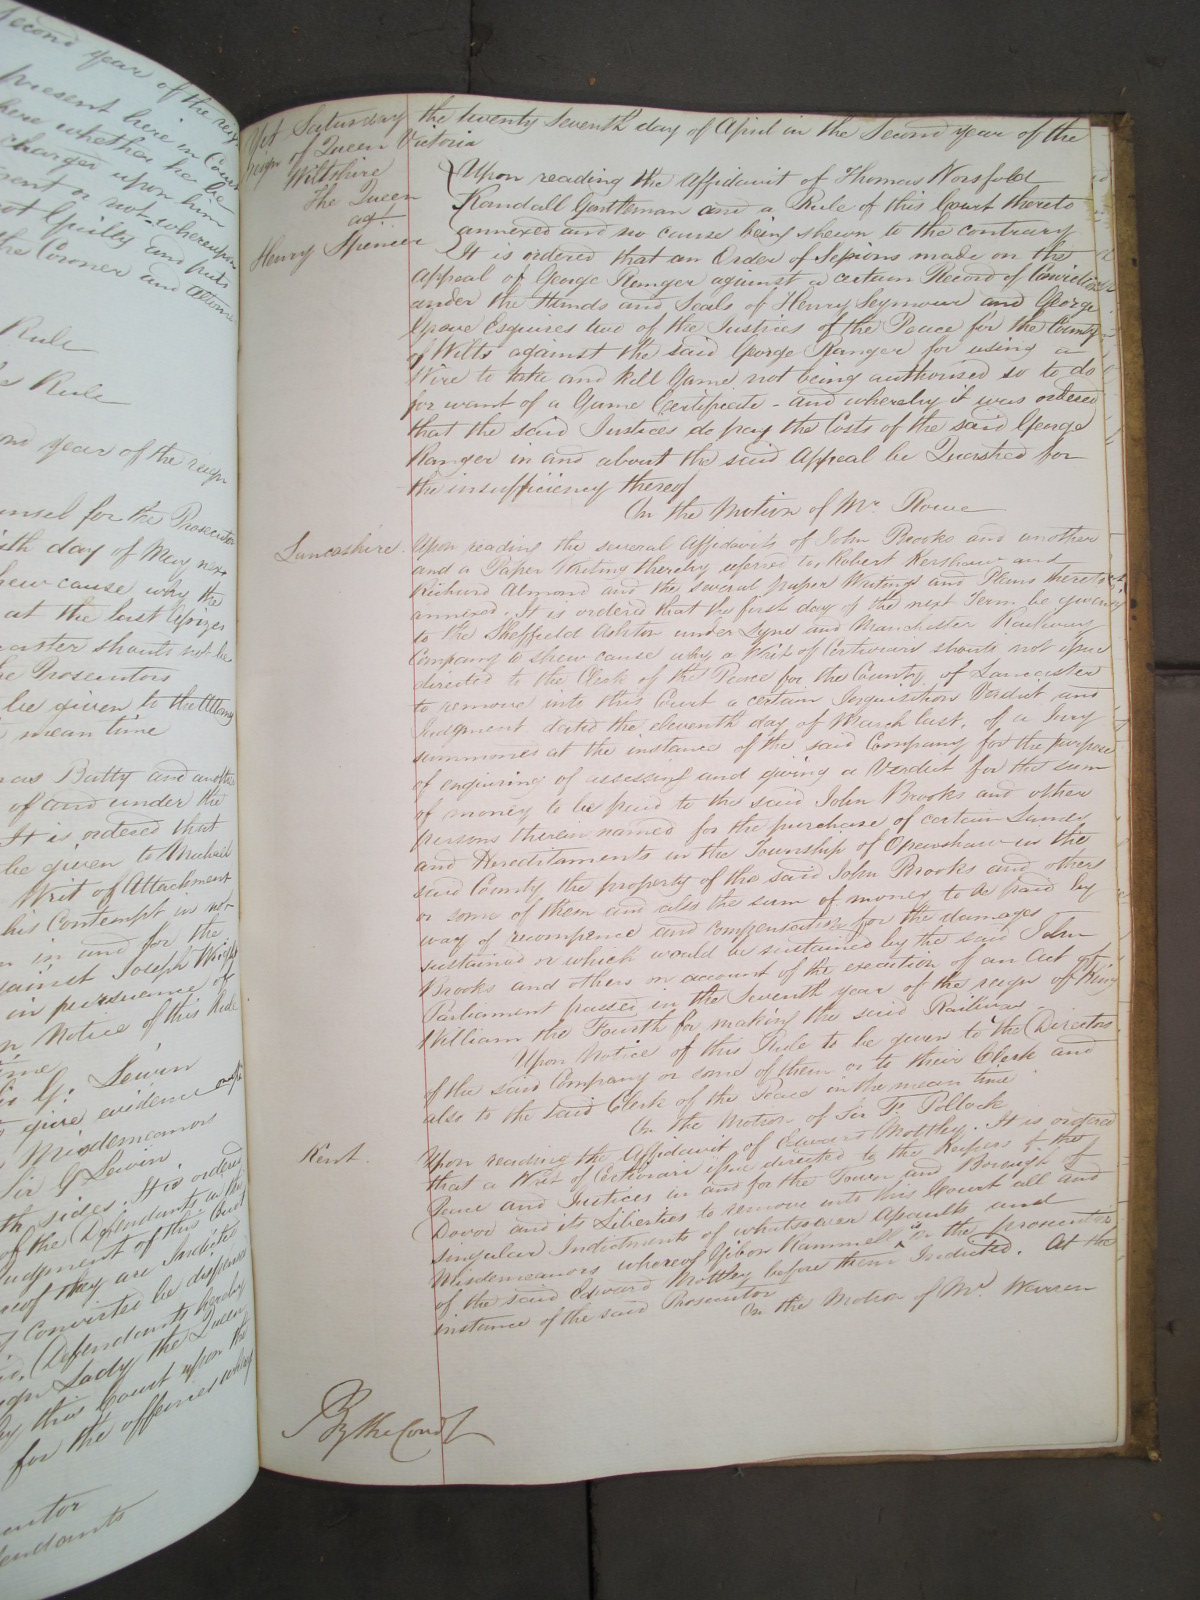 second year of the reign
present here in Court
here whether he be
charges upon him
ment or not whereupon
not Guilty and puts
the Coroner and Attorne
Rule
Rule
year of the reign
for the Prosecutor
day of May next
shew cause why the
at the last Assizes
should not be
Prosecutors
be given to the Attorney
mean time
Batty and another
of and under the
It is ordered that
be given to Michael
Writ of Attachment
his Contempt in not
in and for the
against Joseph Wright
in pursuance of
Notice of this Rule
time
G: Lewin
give evidence
Misdemeanors
Sir G Lewin
sides. It is ordered
of the Defendants in the
Judgment of this Court
they are Indicted
convicted be disposed
Defendants hereby
Lady the Queen
by this Court upon the
for the offences whereof
Defendants
Yet Saturday the twenty seventh day of April in the Second year of the
reign of Queen Victoria
Wiltshire
The Queen
agt
Henry Spencer
Upon reading the Affidavit of Thomas Norsfold
Randall Gentleman and a Rule of this Court thereto
annexed and no cause being shewn to the contrary
It is ordered that an Order of Sessions made on the
Appeal of George Ranger against a certain Record of Conviction
under the Hands and Seals of Henry Seymour and George
Grove Esquires two of the Justices of the Peace for the County
of Wilts against the said George Ranger for using a
Wire to take and kill Game not being authorised so to do
for want of a Game Certificate - and whereby it was ordered
that the said Justices do pay the Costs of the said George
Ranger in and about the said Appeal be Quashed for
the insufficiency thereof
On the Motion of Mr. Rowe
Lancashire. Upon reading the several Affidavits of John Brooks and another
and a Paper Writing thereby referred to, Robert Kershaw and
Richard Almond and the several paper Writings and Plans thereto
annexed. It is ordered that the first day of the next Term be given
to the Sheffield Ashton under Lyne and Manchester Railway
Company to shew cause why a Writ of Certiorari should not issue
directed to the Clerk of the Peace for the County of Lancaster
to remove into this Court a certain Inquisition Verdict and
Judgment dated the eleventh day of March last, of a Jury
summoned at the instance of the said Company for the purpose
of enquiring of assessing and giving a Verdict for the sum
of money to be paid to the said John Brooks and other
persons therein named for the purchase of certain Lands
and Hereditaments in the Township of Openshaw in the
said County the property of the said John Brooks and others
or some of them and also the sum of money to be paid by
way of recompence and compensation for the damages
sustained or which would be sustained by the said John
Brooks and others on account of the execution of an Act of
Parliament passed in the Seventh year of the reign of King
William the Fourth for making the said Railway
Upon Notice of this Rule to be given to the Directors
of the said Company or some of them or to their Clerk and
also to the said Clerk of the Peace in the mean time
On the Motion of Sir Fk Pollock
Kent. Upon reading the Affidavit of Edward Mottley. It is ordered
that a Writ of Certiorari issue directed to the Keepers of the
Peace and Justices in and for the Town and Borough of
Dovor and its Liberties to remove into this Court all and
singular Indictments of whatsoever Assaults and
Misdemeanors whereof Gibbon Rammell is on the prosecution
of the said Edward Mottley before them Indicted. At the
instance of the said Prosecutor
On the Motion of Mr Warren
By the Court